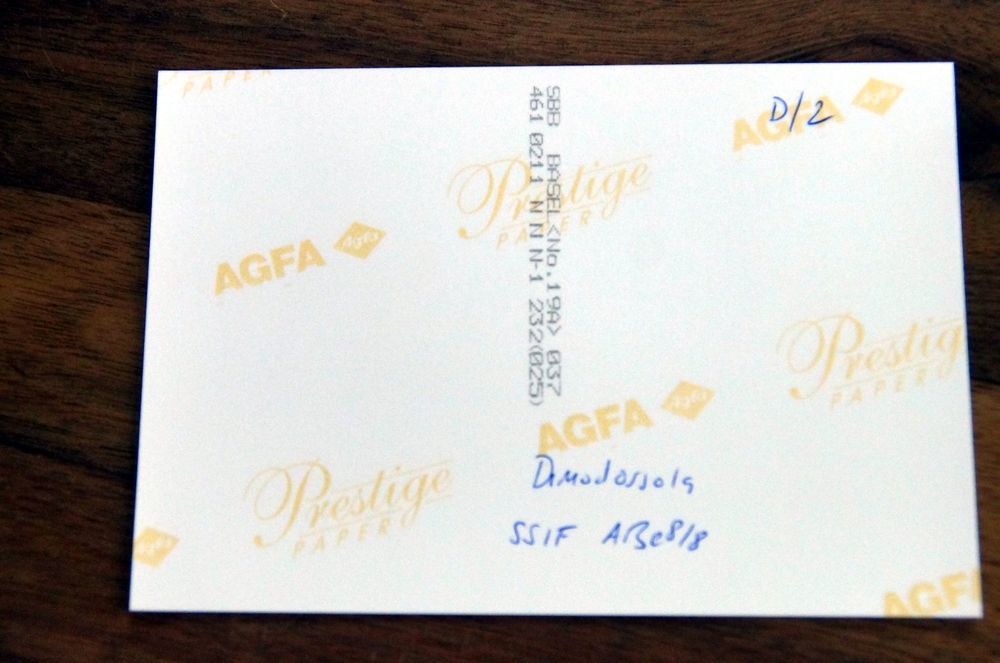 PAPER
D/2
AGFA Agfa
SBB BASEL<No.19A> 037
461 0211 N N N-1 232(025)
Prestige
PAPER
AGFA Agfa
Prestig
PAPER
AGFA Agfa
Domodossola
Prestige
PAPER
SSIF ABe8/8
Agfa
AGF